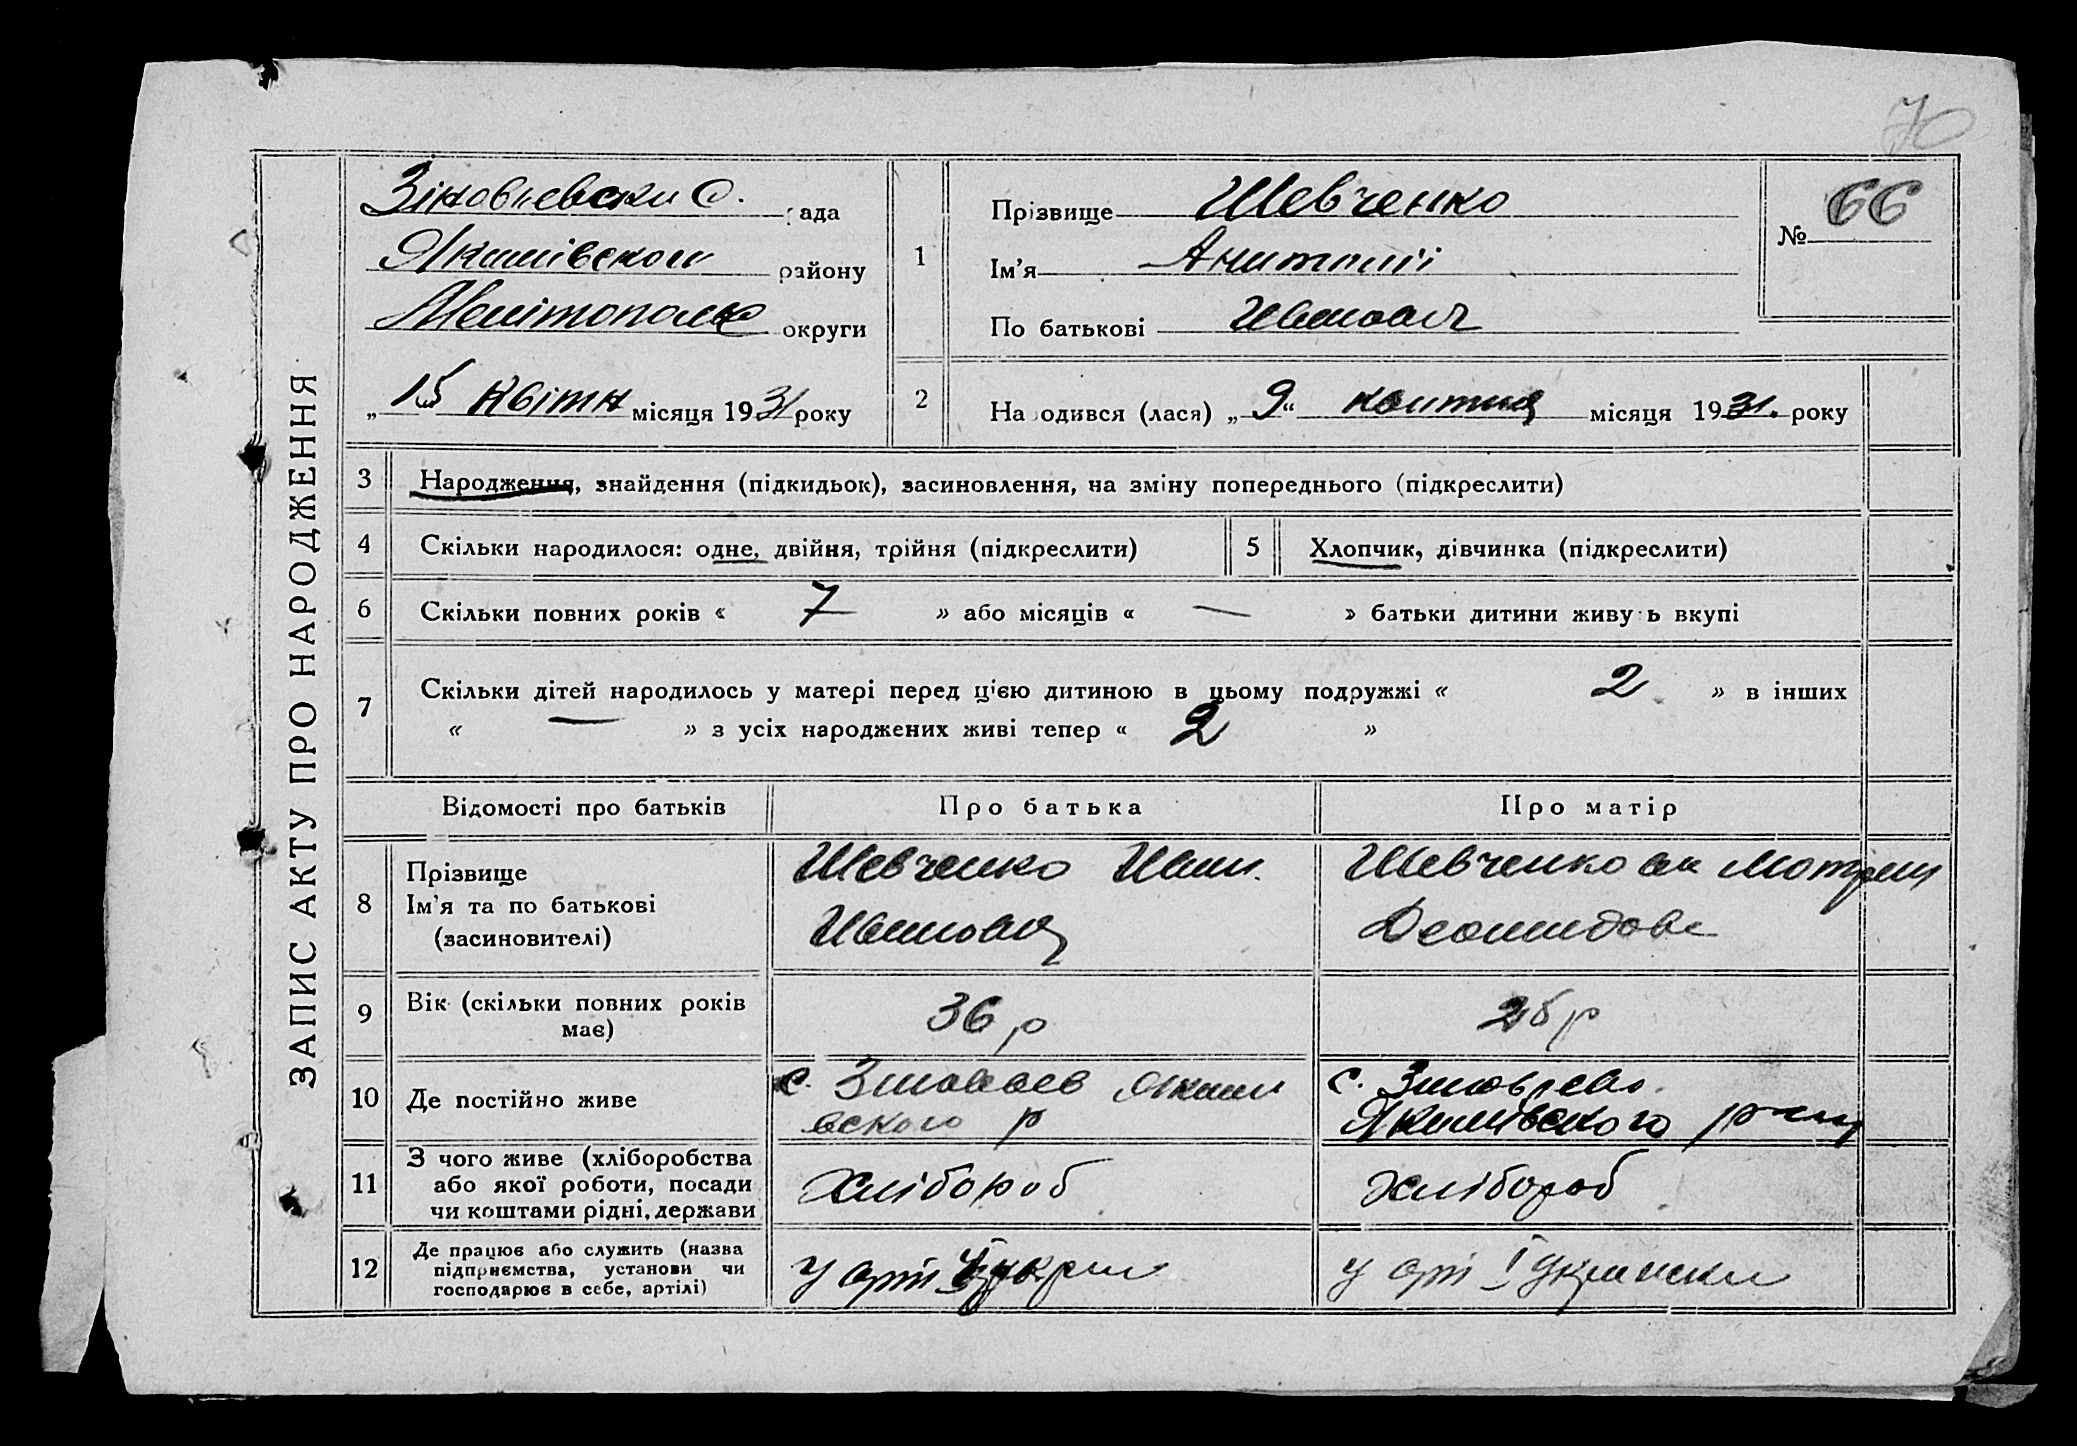 70
ЗАПИС АКТУ ПРО НАРОДЖЕННЯ
Зіновьевски С. рада
Якимівского району
Мелітополь округи
„15 квітн місяця 1931 року
1
Прізвище Шевченко
Ім'я Анатолій
По батькові Иванович
№ 66
2
На одився (лася) „9“ квитня місяця 1931. року
3 Народження, знайдення (підкидьок), засиновлення, на зміну попереднього (підкреслити)
4 Скільки народилося: одне, двійня, трійня (підкреслити)
5 Хлопчик, дівчинка (підкреслити)
6 Скільки повних років « 7 » або місяців « — » батьки дитини живу ь вкупі
7 Скільки дітей народилось у матері перед цією дитиною в цьому подружжі « 2 » в інших
« — » з усіх народжених живі тепер « 2 »
Відомості про батьків
Про батька
Про матір
8 Прізвище
Ім'я та по батькові
(засиновителі)
Шевченко Иван.
Иванович
Шевченко Мотря
9 Вік (скільки повних років
має)
36 р
10 Де постійно живе
с. Якими
вского р
с. Зиновьево.
Якимівского р
11 З чого живе (хліборобства
або якої роботи, посади
чи коштами рідні, держави
Хлібороб
Хлібороб
12 Де працює або служить (назва
підприємства, установи чи
господарює в себе, артілі)
у арт
у арт